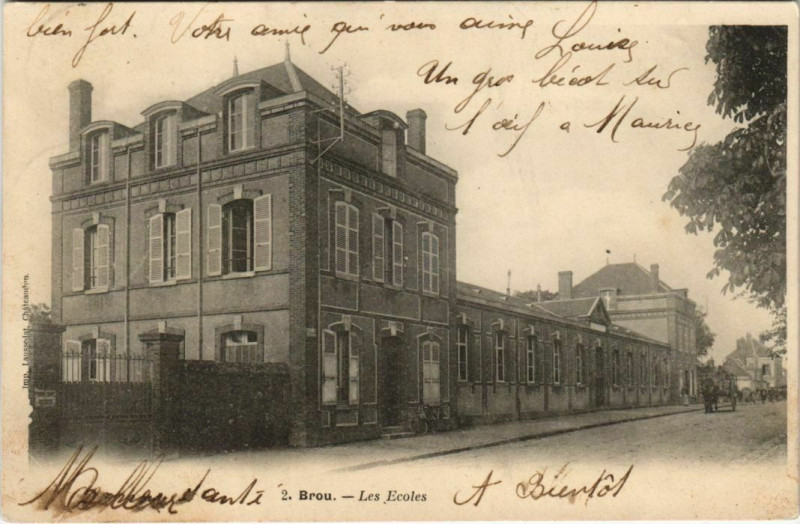 bien fort. Votre amie qui vous aime
Louise
Un gros bécot sur
l'œil a Maurice
Imp. Laussedat, Châteaudun.
2. Brou. — Les Ecoles
A Bientôt